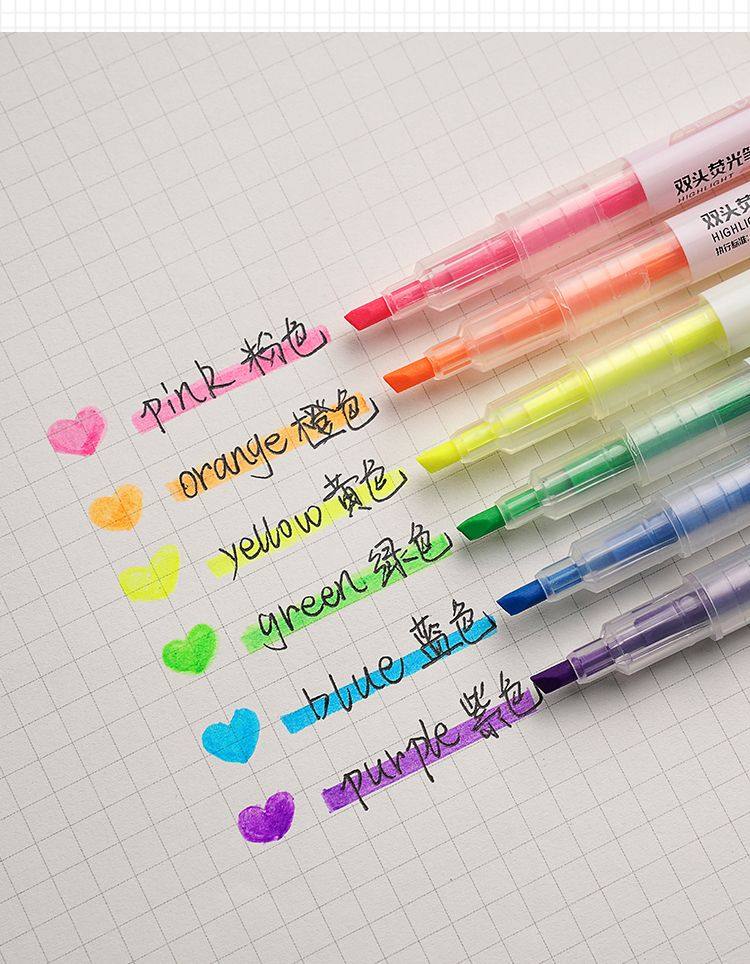 双头荧光笔
HIGHLIGHT
双头荧
HIGHLIG
执行标准:
pink 粉色
orange 橙色
yellow 黄色
green 绿色
blue 蓝色
purple 紫色